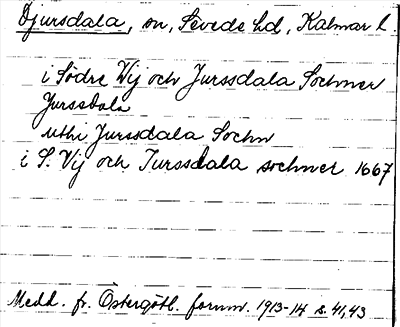 Djursdala, sn, Sevede hd, Kalmar l.
i Södre Vij och Jurssdala Sochner
Jurssdala
uthi Jurssdala Sochn
i S. Vij och Jurssdala sochner 1667
Medd. fr. Östergötl. fornm. 1913-14 s. 41, 43